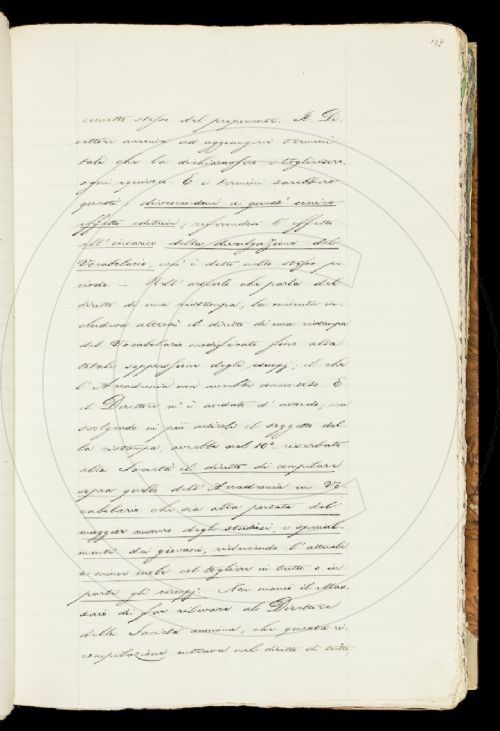 149
concetto stesso del proponente. Il Di-
rettore ad aggiungervi termini
tali che la dichiarassero e togliessero
ogni equivoco. E i termini sarebbero
questi: devenendosi a quest' unico
effetto editrice; referendosi l' effetto
all' incarico della divulgazione del
Vocabolario, così è detto nello stesso pe-
riodo. — Nell' articolo che parla del
diritto di una ristampa, la minuta in-
chiudeva altresì il diritto di una ristampa
del Vocabolario modificato fin alla
totale soppressione degli esempj; il che
l' Accademia non avrebbe consentito. E
il Direttore n' è andato d' accordo, ma
svolgendo in più articoli il soggetto del-
la ristampa, avrebbe nel 10.° riserbato
alla Società il diritto di compilare
sopra quello dell' Accademia un Vo-
cabolario che sia alla portata del
maggior numero degli studiosi, e special-
mente dei giovani, riducendo l' attuale
a minor mole col togliere in tutto o in
parte gli esempj. Non manco il Mas-
saio di far rilevare al Direttore
della Società anonima, che questa ri-
compilazione entrava nel diritto di tutti,